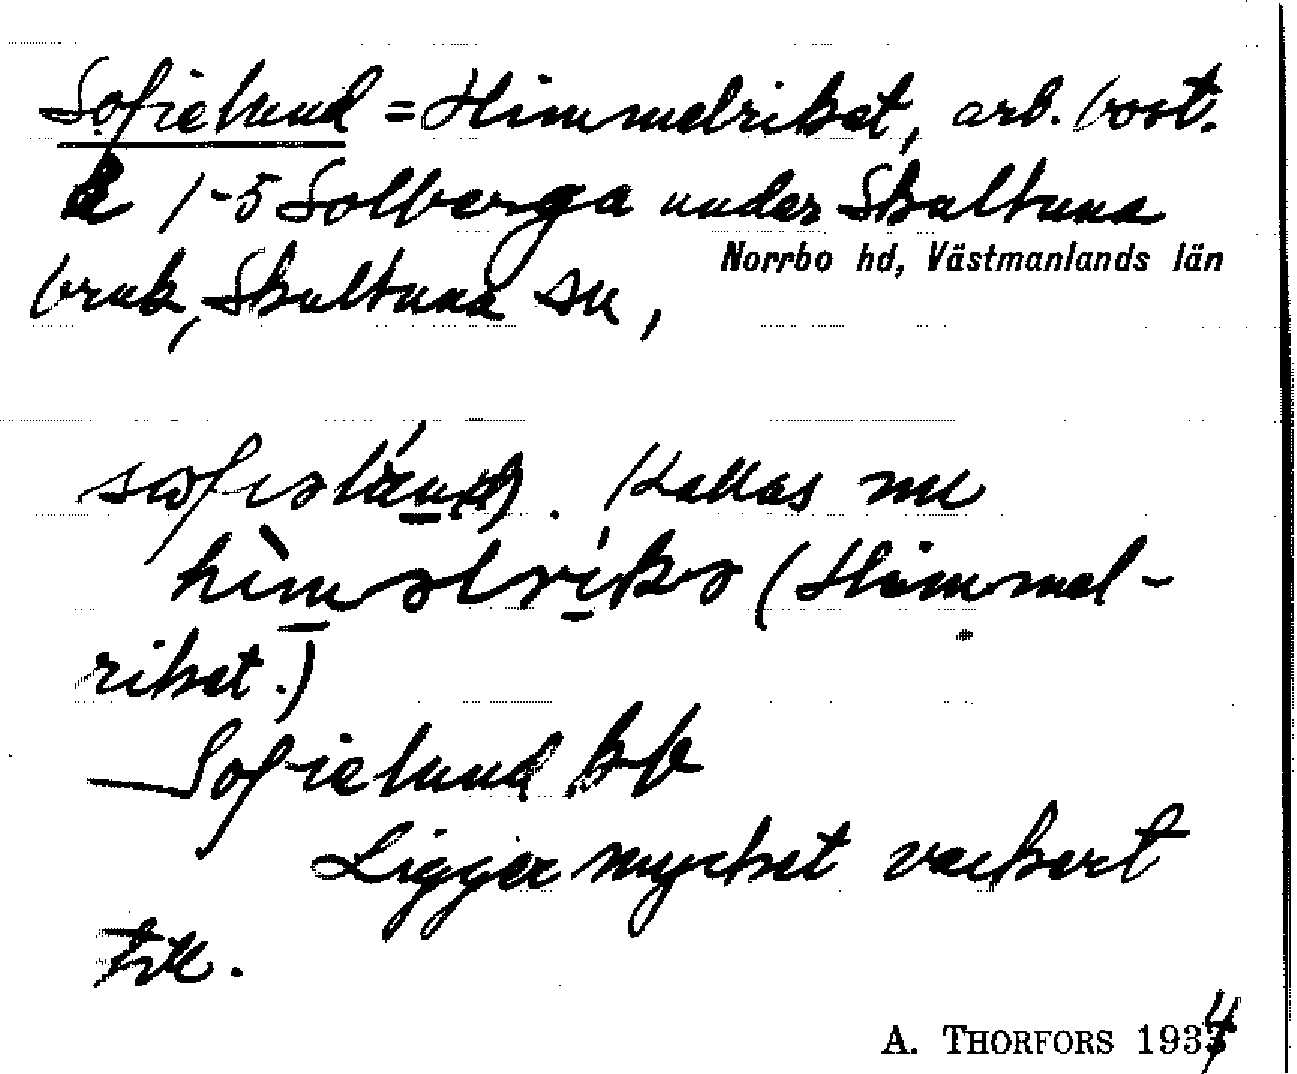 Sofielund = Himmelriket, arb. bost.
å 1-5 Solberga under Skultuna
Norrbo hd, Västmanlands län
bruk, Skultuna sn,
Kallas nu
(Himmel-
riket.)
— Sofielund kk
Ligger mycket vackert
till.
A. THORFORS 1934